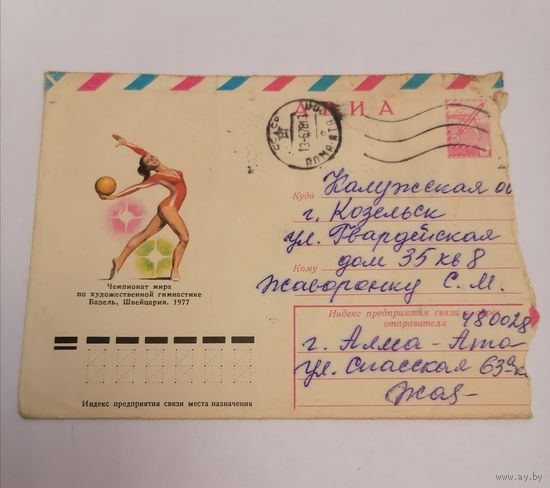 АВИА
СССР
13-6-78
АЛМА-АТА
Куда Калужсская об
г. Козельск
ул. Гвардейская
дом 35 кв 8
Кому Жаворонку С. М.
Чемпионат мира
по художественной гимнастике
Базель, Швейцария. 1977
Индекс предприятия связи и адрес
отправителя 480028
г. Алма-Ата
ул. Спасская 63а к
Жав-
Индекс предприятия связи места назначения
www.ay.by